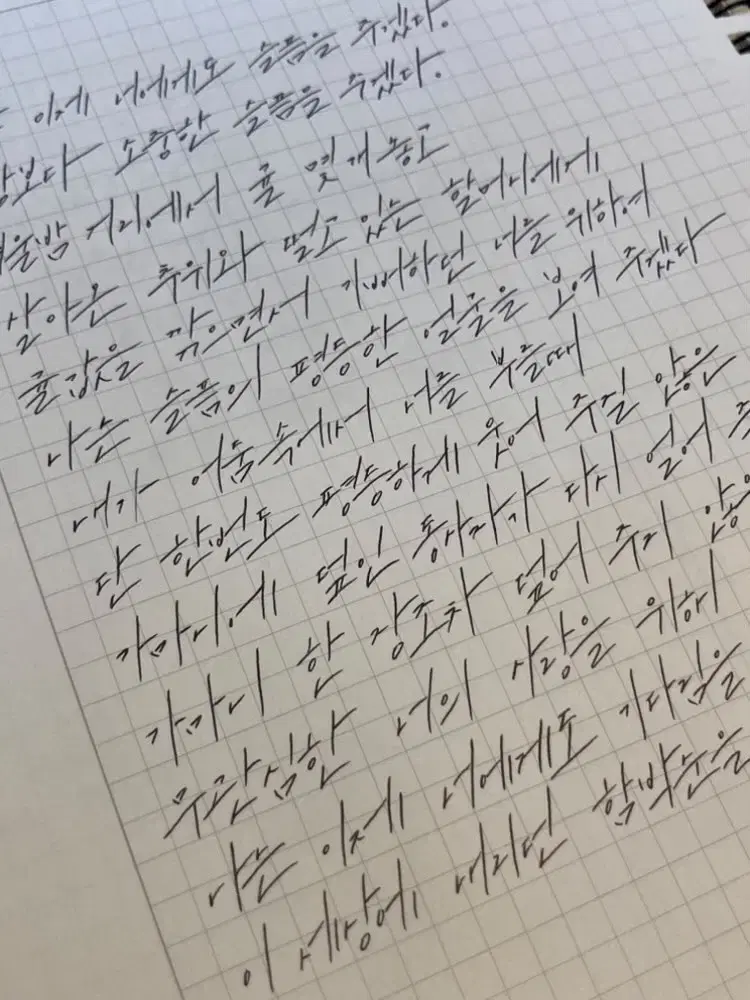 이제 너에게도 슬픔을 주겠다.
소중한 슬픔을 주겠다.
겨울밤 거리에서 귤 몇개 놓고
살아온 추위와 떨고 있는 할머니에게
귤값을 깎으면서 기뻐하던 너를 위하여
나는 슬픔의 평등한 얼굴을 보여 주겠다
내가 어둠 속에서 너를 부를때
단 한번도 평등하게 웃어 주질 않은
가마니에 덮인 동사자가 다시 얼어
가마니 한 장조차 덮어 주지
무관심한 너의 사랑을 위해
나는 이제 너에게도 기다림을
이 세상에 내리던 함박눈을